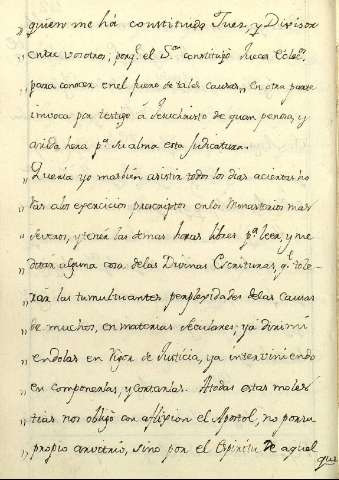 „ quien me há constituido Juez, y Divisor
„ entre vosotros, porq.e el S.or constituyó Jueces Ecles.cos
„ para conocer en el fuero de tales causas,, en otra parte
„ invoca por testigo á Jesuchristo de quan penosa, y
„ arida hera p.a su alma esta judicatura.
„ Queria yo mas bien asistir todos los dias aciertas ho
„ ras alos exercicios prescriptos en los Monasterios mas
„ severos, y tener las demas horas libres p.a leer, y me
„ ditar alguna cosa delas Divinas Escrituras, q.e tole-
„ rar las tumultuantes perplexidades delas causas
„ de muchos, en materias seculares; ya dirimi
„ endolas en rigor de Justicia, ya interviniendo
„ en componerlas, y cortarlas. Atodas estas moles
„ tias nos obligó con aflixion el Apostol, no porsu
„ propio arvitrio, sino por el Espiritu de aquel
que